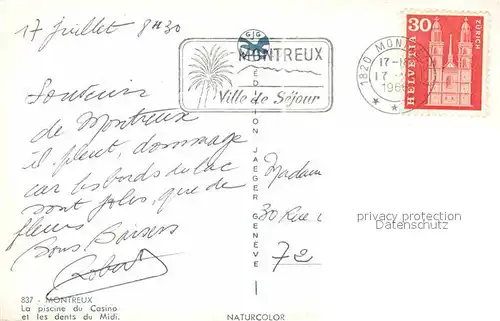 17 juillet 8H30
GJG
MONTREUX
Ville de Séjour
1820 MONTREUX
17
17
196
30
HELVETIA
ZÜRICH
Souvenir
de Montreux
il pleut, dommage
car les bords du lac
sont jolis, que de
fleurs
Bons Baisers
Robert
EDITION JAEGER GENEVE
Madame
30 Rue
72
privacy protection
Datenschutz
837 - MONTREUX
La piscine du Casino
et les dents du Midi.
NATURCOLOR